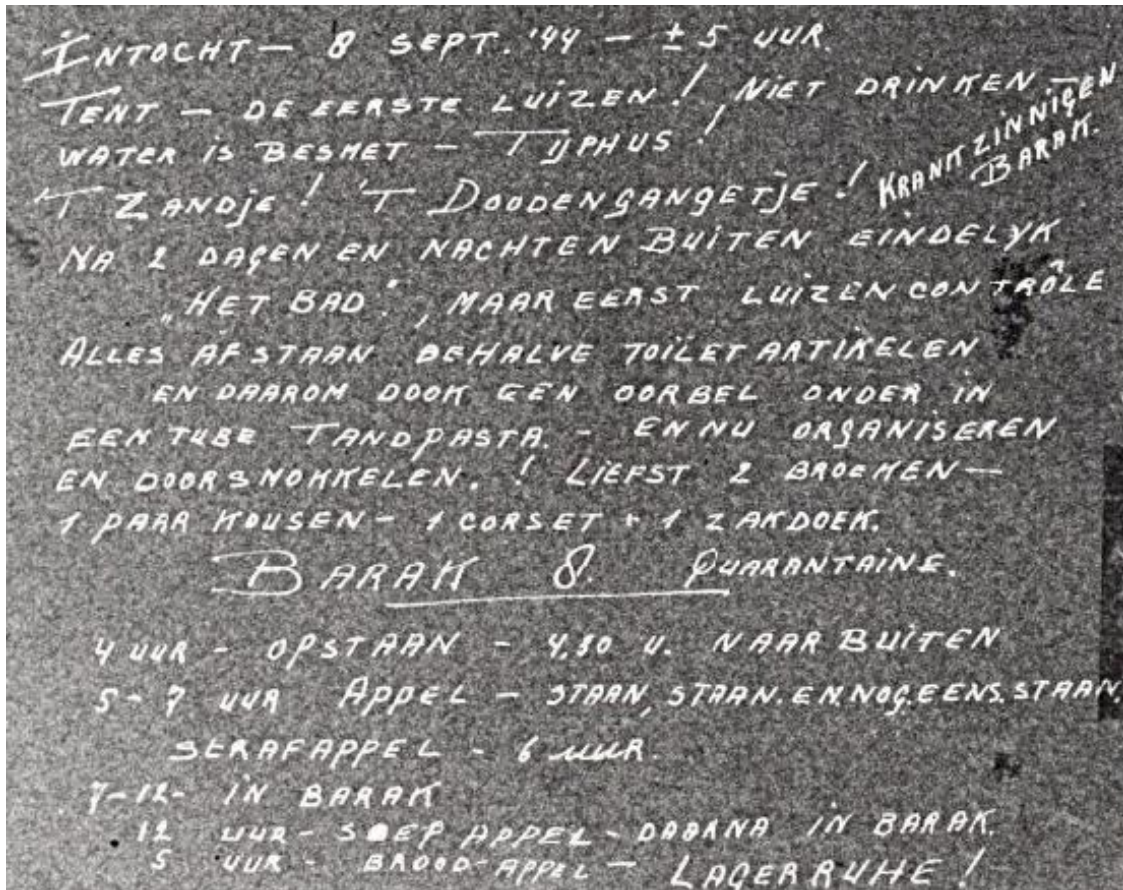 INTOCHT — 8 SEPT. '44 — ± 5 UUR.
TENT — DE EERSTE LUIZEN! NIET DRINKEN —
WATER IS BESMET — TYPHUS!
KRANKZINNIGEN
BARAK.
'T ZANDJE! 'T DOODENGANGETJE!
NA 2 DAGEN EN NACHTEN BUITEN EINDELYK
„HET BAD", MAAR EERST LUIZENCONTRÔLE
ALLES AFSTAAN BEHALVE TOILETARTIKELEN
EN DAAROM DOOK GEN OORBEL ONDER IN
EEN TUBE TANDPASTA. - EN NU ORGANISEREN
EN DOORSMOKKELEN.! LIEFST 2 BROEKEN —
1 PAAR KOUSEN - 1 CORSET + 1 ZAKDOEK.
BARAK 8. QUARANTAINE.
4 UUR - OPSTAAN - 4.30 U. NAAR BUITEN
5-7 UUR APPEL - STAAN, STAAN. EN.NOG.EENS.STAAN.
STRAFAPPEL - 6 UUR.
7-12- IN BARAK
12 UUR - SOEP APPEL - DAARNA IN BARAK.
5 UUR - BROOD-APPEL - LAGERRUHE!